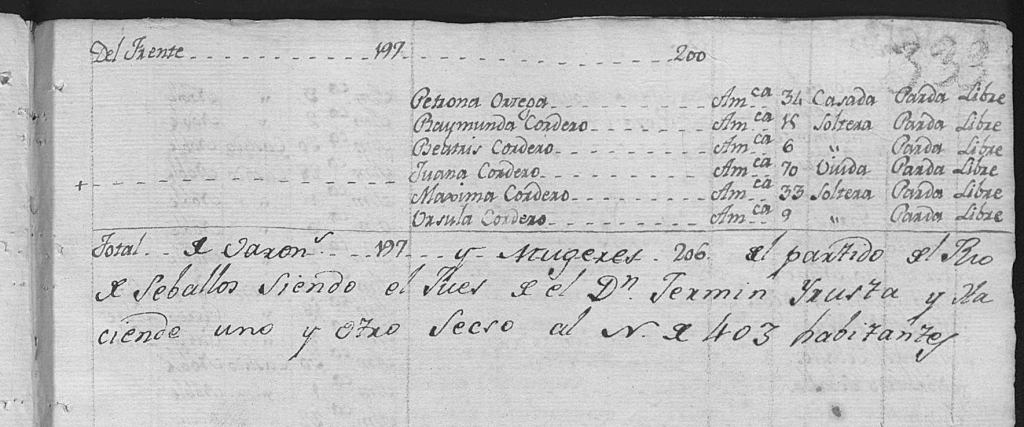 Del Frente 197 200
Petrona Ortega Am.ca 34 Casada Parda Libre
Raymunda Cordero Am.ca 18 Soltera Parda Libre
Beatris Cordero Am.ca 6 " Parda Libre
Juana Cordero Am.ca 70 Viuida Parda Libre
Maxima Cordero Am.ca 33 Soltera Parda Libre
Ursula Cordero Am.ca 9 " Parda Libre
Total de Varon.s 197 y Mugeres 206 del partido del Rio
de Seballos siendo el Jues de el Dn. Fermin Yrusta y Ha
ciende uno y otro Secso al N. de 403 habitantes